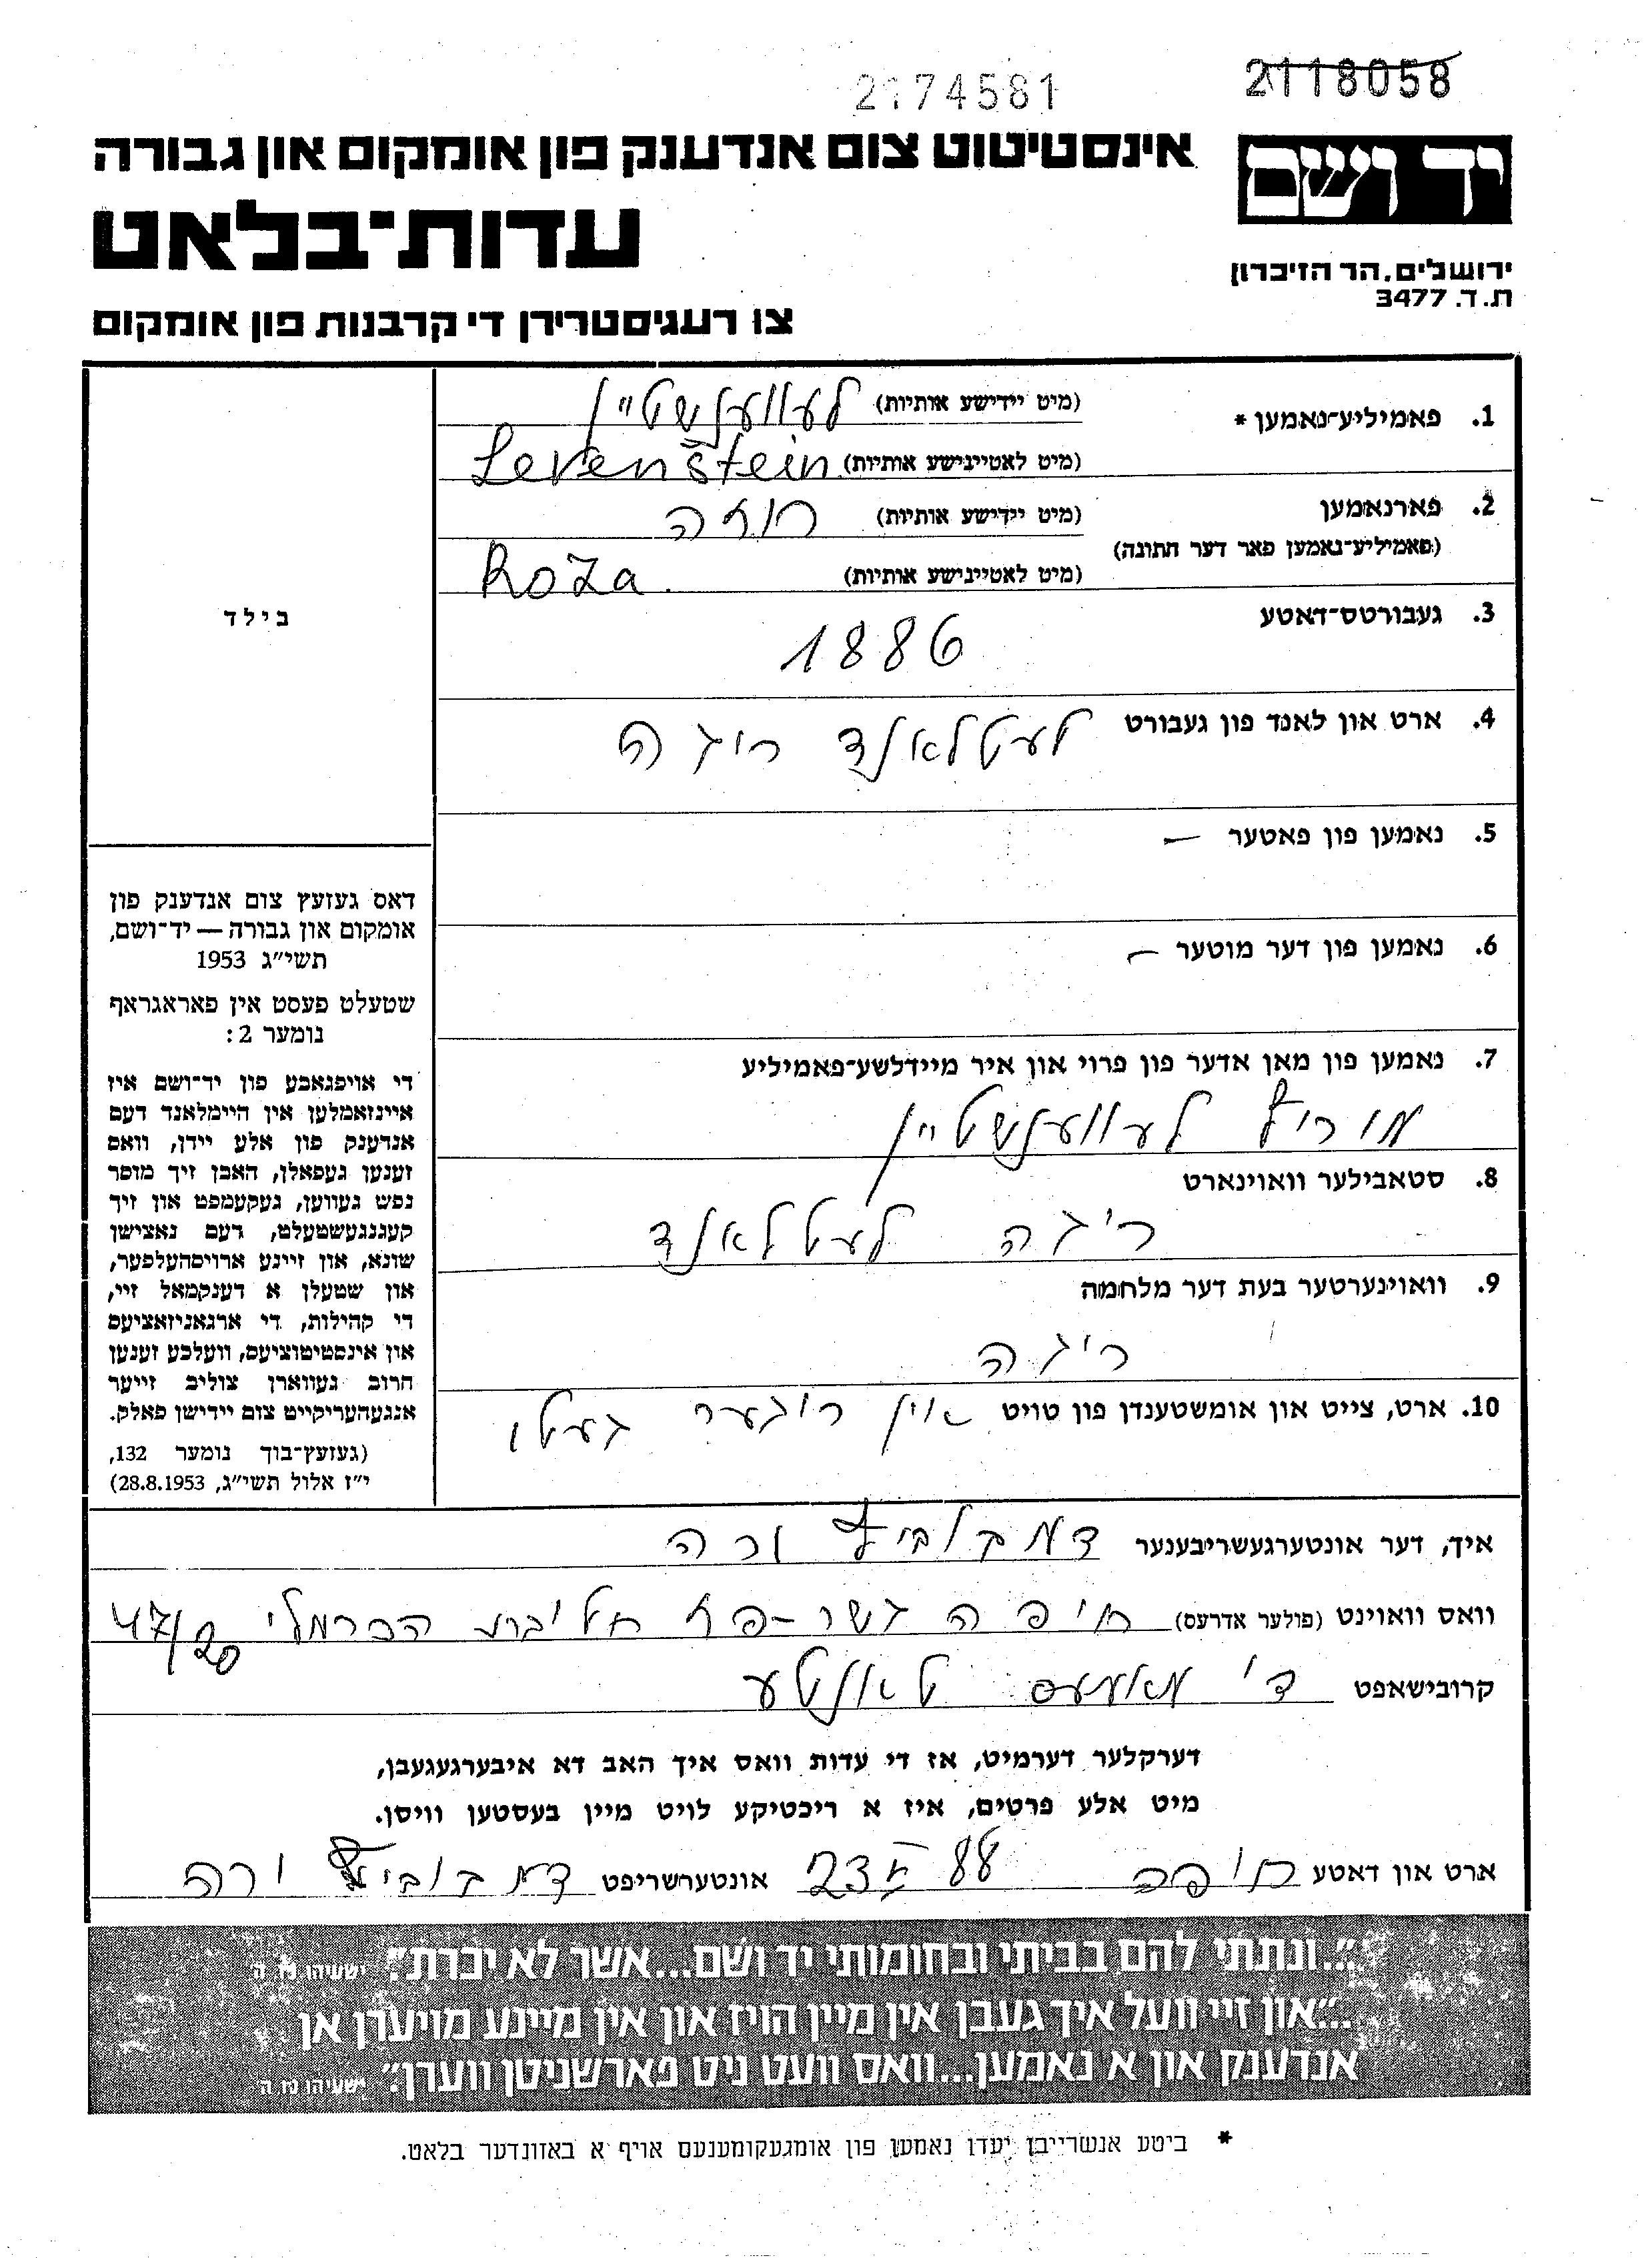 2174581
2118058
יד ושם
ירושלים, הר הזיכרון
ת.ד. 3477
אינסטיטוט צום אנדענק פון אומקום און גבורה
עדות־בלאט
צו רעגיסטרירן די קרבנות פון אומקום
1. פאמיליע־נאמען *
(מיט יידישע אותיות) לעווענשטיין
(מיט לאטיינישע אותיות) Levenštein
2. פארנאמען (מיט יידישע אותיות) רוזה
(פאמיליע־נאמען פאר דער חתונה)
(מיט לאטיינישע אותיות) Roza
3. געבורטס־דאטע
1886
4. ארט און לאנד פון געבורט לעטלאנד ריגה
5. נאמען פון פאטער —
6. נאמען פון דער מוטער —
7. נאמען פון מאן אדער פון פרוי און איר מיידלשע־פאמיליע
מוריץ לעווענשטיין
8. סטאבילער וואוינארט
ריגה לעטלאנד
9. וואוינערטער בעת דער מלחמה
ריגה
10. ארט, צייט און אומשטענדן פון טויט אין ריגער געטו
בילד
דאס געזעץ צום אנדענק פון
אומקום און גבורה — יד־ושם,
תשי"ג 1953
שטעלט פעסט אין פאראגראף
נומער 2:
די אויפגאבע פון יד־ושם איז
איינזאמלען אין היימלאנד דעם
אנדענק פון אלע יידן, וואס
זענען געפאלן, האבן זיך מוסר
נפש געווען, געקעמפט און זיך
קעגנגעשטעלט, דעם נאצישן
שונא, און זיינע ארויסהעלפער,
און שטעלן א דענקמאל זיי,
די קהילות, די ארגאניזאציעס
און אינסטיטוציעס, וועלכע זענען
חרוב געווארן צוליב זייער
אנגעהעריקייט צום יידישן פאלק.
(געזעץ־בוך נומער 132,
י"ז אלול תשי"ג, 28.8.1953)
איך, דער אונטערגעשריבענער ורה
וואס וואוינט (פולער אדרעס) חיפה גשר־פז הכרמלי 47/20
קרובישאפט די מאמעס טאנטע
דערקלער דערמיט, אז די עדות וואס איך האב דא איבערגעגעבן,
מיט אלע פרטים, איז א ריכטיקע לויט מיין בעסטען וויסן.
ארט און דאטע חיפה 23 88 אונטערשריפט ורה
"...ונתתי להם בביתי ובחומותי יד ושם...אשר לא יכרת". ישעיהו נו ה
"...און זיי וועל איך געבן אין מיין הויז און אין מיינע מויערן אן
אנדענק און א נאמען...וואס וועט ניט פארשניטן ווערן". ישעיהו נו ה
* ביטע אנשרייבן יעדן נאמען פון אומגעקומענעם אויף א באזונדער בלאט.